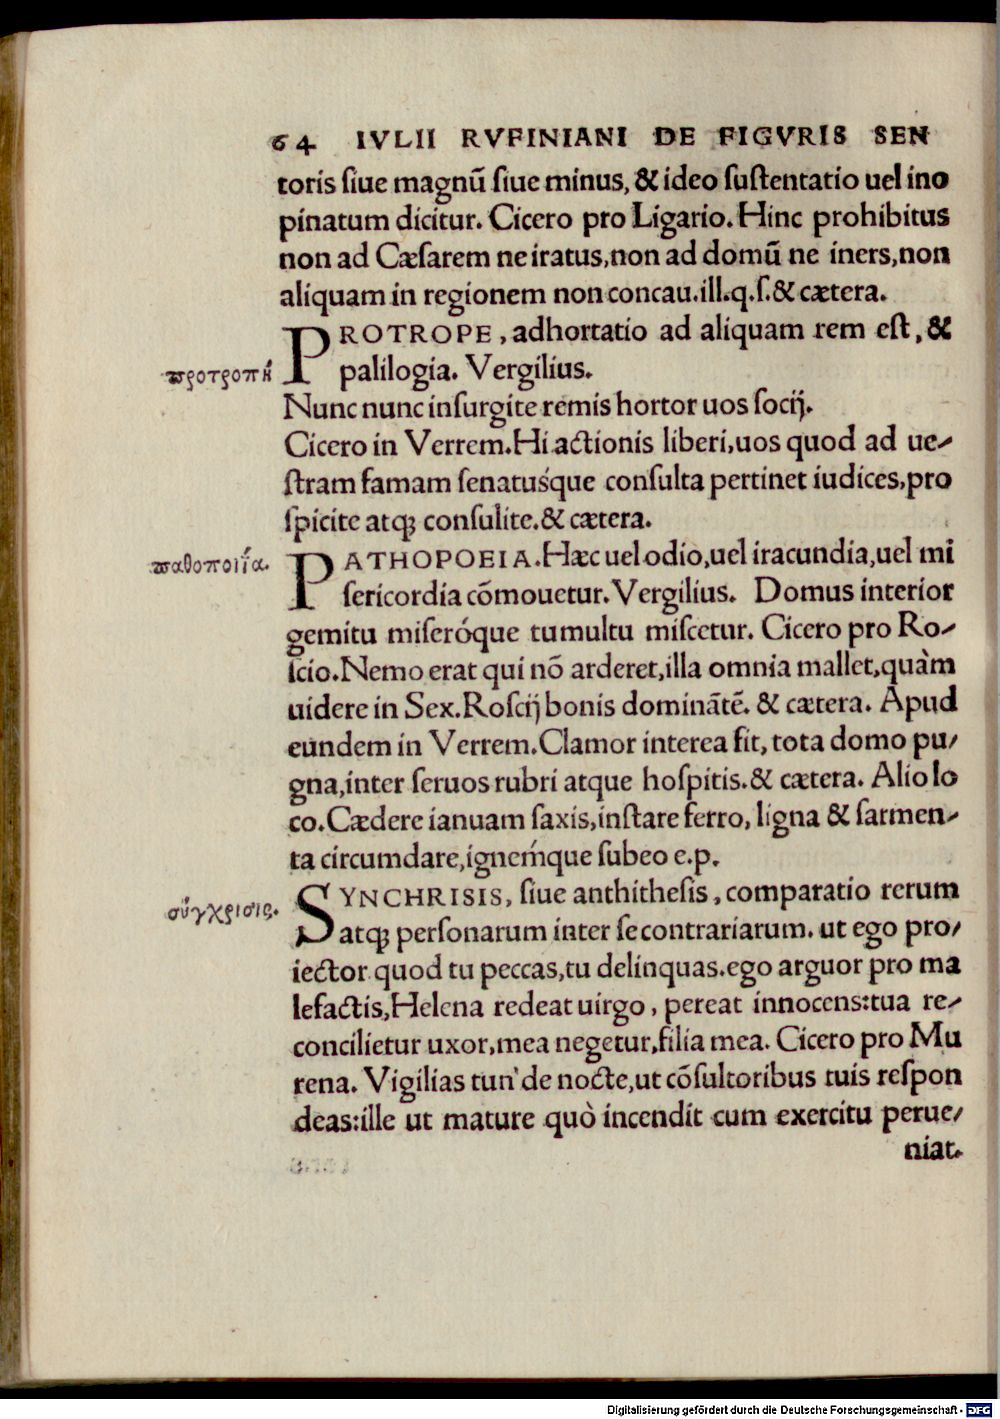 64 IVLII RVFINIANI DE FIGVRIS SEN
toris ſiue magnũ ſiue minus, & ideo ſuſtentatio uel ino
pinatum dicitur. Cicero pro Ligario. Hinc prohibitus
non ad Cæſarem ne iratus,non ad domũ ne iners,non
aliquam in regionem non concau.ill.q.ſ.& cætera.
PROTROPE, adhortatio ad aliquam rem eſt, &
προτροπὴ palilogia. Vergilius.
Nunc nunc inſurgite remis hortor uos ſocij.
Cicero in Verrem.Hi actionis liberi,uos quod ad ue-
ſtram famam ſenatusq́ue conſulta pertinet iudices,pro
ſpicite atqꝫ conſulite.& cætera.
παθοποιΐα. PATHOPOEIA.Hæc uel odio,uel iracundia,uel mi
ſericordia cõmouetur. Vergilius. Domus interior
gemitu miſeróque tumultu miſcetur. Cicero pro Ro-
ſcio.Nemo erat qui nõ arderet,illa omnia mallet,quàm
uidere in Sex.Roſcij bonis dominãtẽ. & cætera. Apud
eundem in Verrem.Clamor interea fit, tota domo pu-
gna,inter ſeruos rubri atque hoſpitis.& cætera. Alio lo
co.Cædere ianuam ſaxis,inſtare ferro, ligna & ſarmen-
ta circumdare,ignemq́ue ſubeo e.p.
σύγχρισις. SYNCHRISIS, ſiue anthitheſis, comparatio rerum
atqꝫ perſonarum inter ſe contrariarum. ut ego pro-
iector quod tu peccas,tu delinquas.ego arguor pro ma
lefactis,Helena redeat uirgo, pereat innocens:tua re-
concilietur uxor,mea negetur,filia mea. Cicero pro Mu
rena. Vigilias tun' de nocte,ut cõſultoribus tuis reſpon
deas:ille ut mature quò incendit cum exercitu perue-
niat.
Digitalisierung gefördert durch die Deutsche Forschungsgemeinschaft - DFG